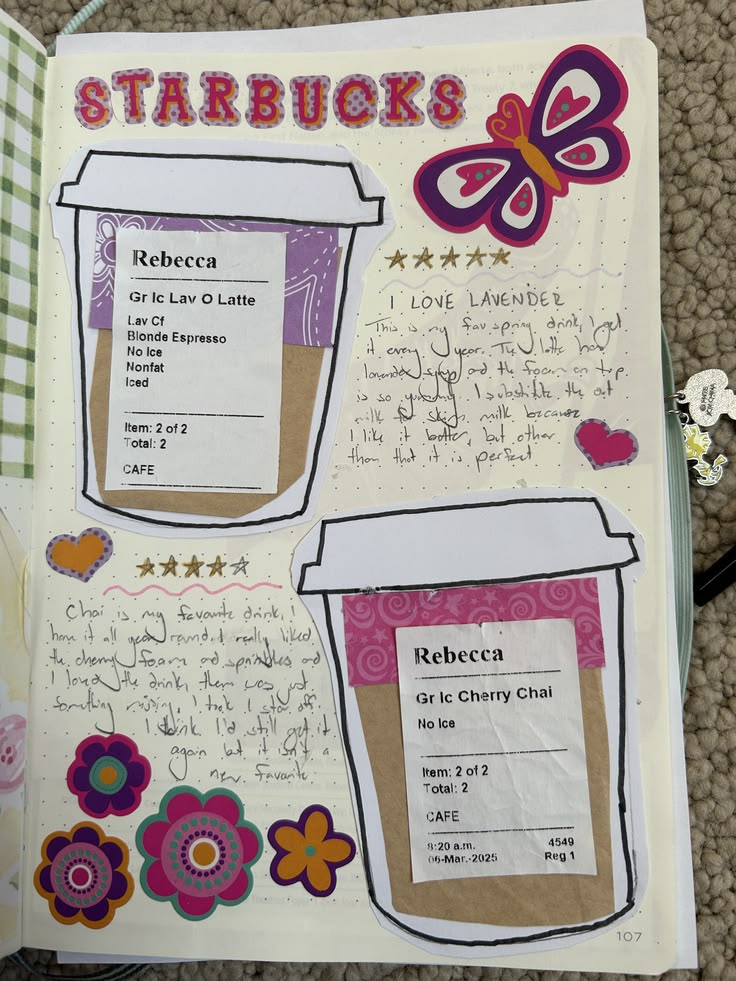 STARBUCKS
Rebecca
Gr Ic Lav O Latte
Lav Cf
Blonde Espresso
No Ice
Nonfat
Iced
Item: 2 of 2
Total: 2
CAFE
I LOVE LAVENDER
This is my fav spring drink, I get
it every year. The latte has
lavender syrup and the foam on top
is so yummy. I substitute the oat
milk for skim milk because
I like it better, but other
than that it is perfect
Chai is my favourite drink, I
have it all year round. I really liked
the cherry foam and sprinkles and
I loved the drink, there was just
something missing. I took 1 star off
I think I'd still get it
again but it isn't a
new favourite.
Rebecca
Gr Ic Cherry Chai
No Ice
Item: 2 of 2
Total: 2
CAFE
8:20 a.m. 4549
06-Mar.-2025 Reg 1
107